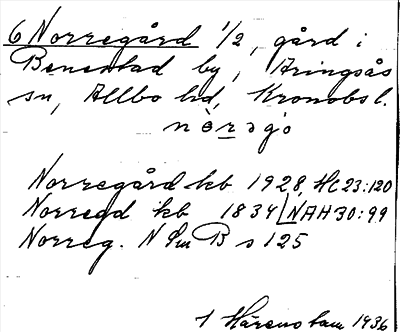 6 Norregård 1/2, gård i
Benestad by, Aringsås
sn, Allbo hd, Kronobs l.
nòrəgɔ
Norregård kb 1928, HC 23:120
Norregd kb 1834 NAH 30:99
Norreg. N Sm B s 125
1 Härens lam 1936